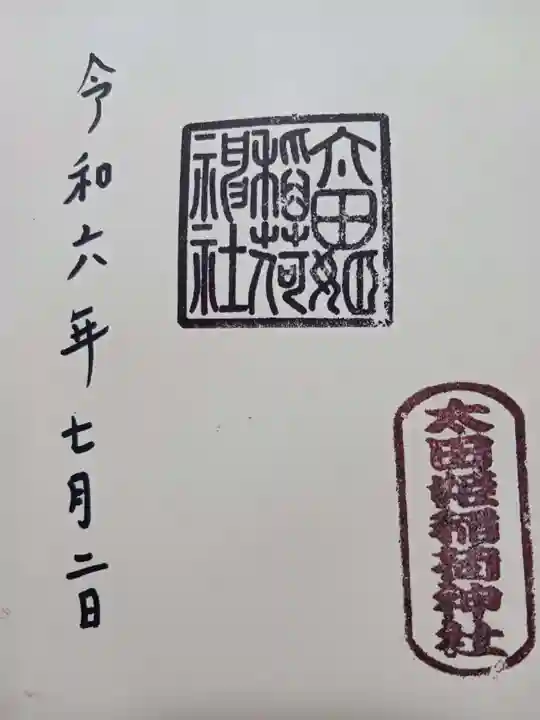 太田姫稲荷神社
太田姫
稲荷
神社
令和六年七月二日